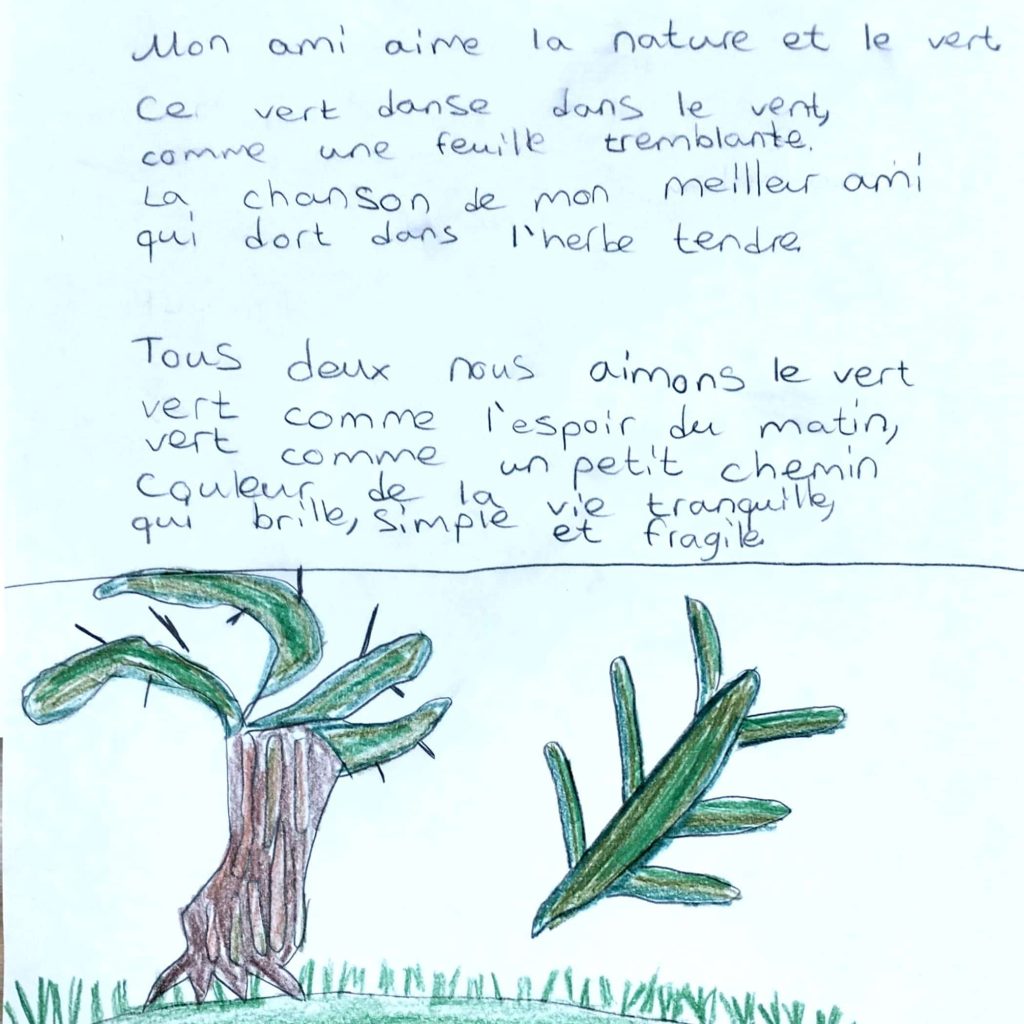 Mon ami aime la nature et le vert.
Ce vert danse dans le vent,
comme une feuille tremblante.
La chanson de mon meilleur ami
qui dort dans l'herbe tendre.
Tous deux nous aimons le vert
vert comme l'espoir du matin,
vert comme un petit chemin
couleur de la vie tranquille,
qui brille, simple et fragile.